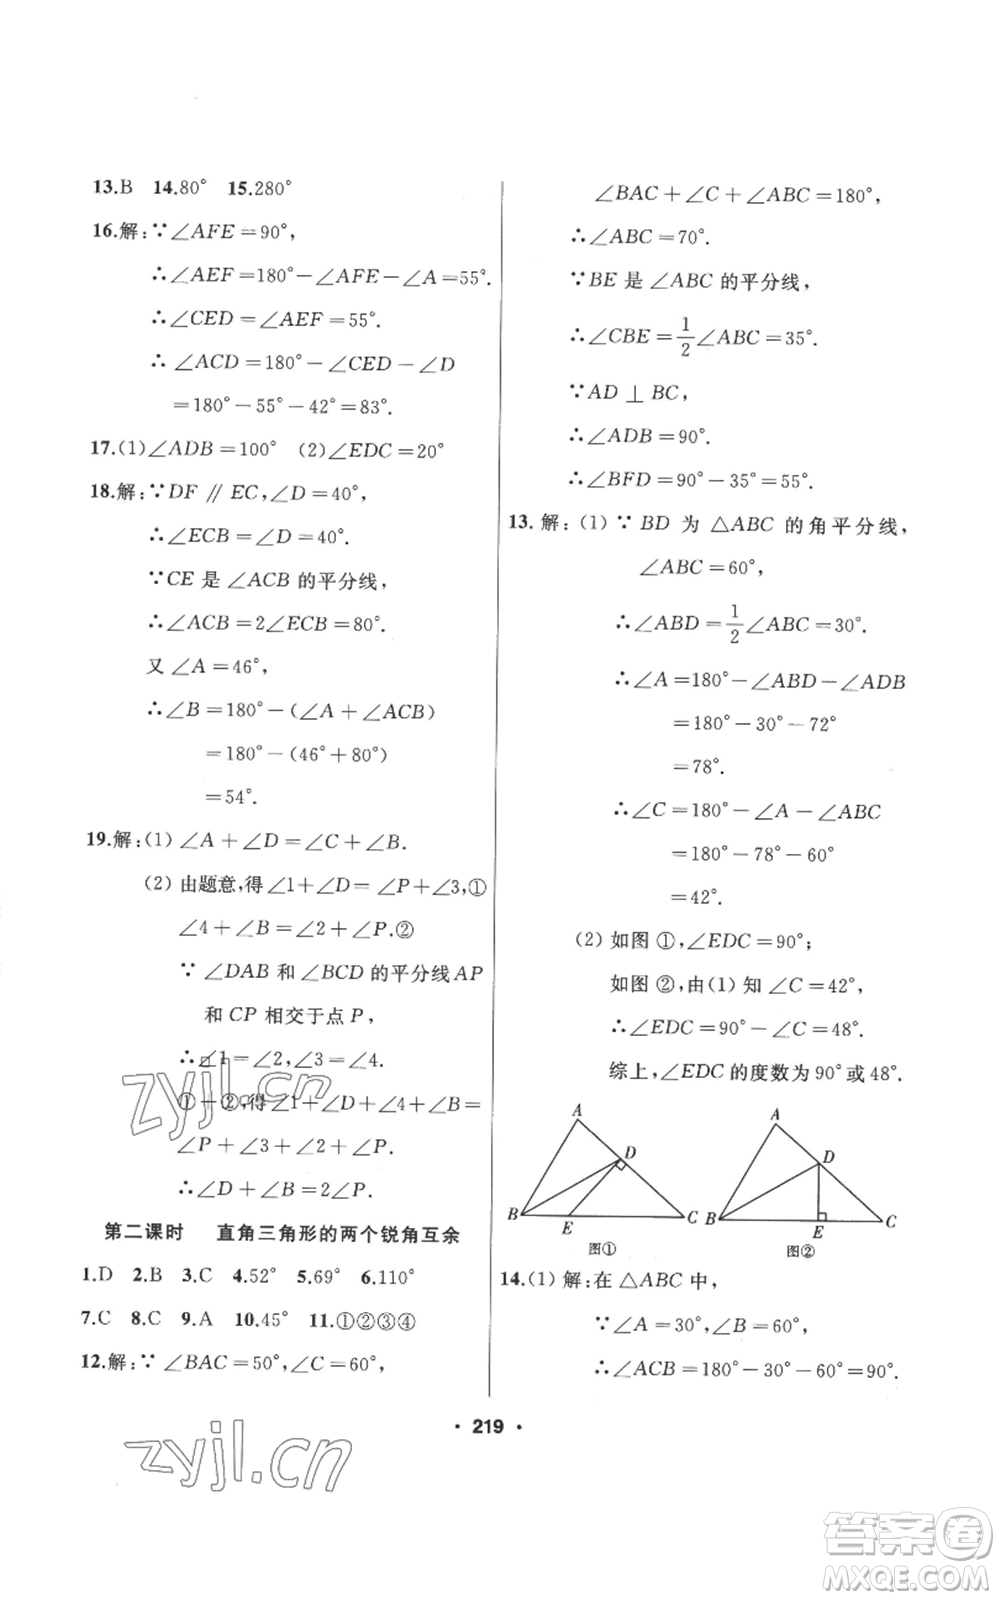 13.B 14.80° 15.280°
16.解:∵∠AFE=90°,
∴∠AEF=180°-∠AFE-∠A=55°.
∴∠CED=∠AEF=55°.
∴∠ACD=180°-∠CED-∠D
=180°-55°-42°=83°.
17.(1)∠ADB=100° (2)∠EDC=20°
18.解:∵DF∥EC,∠D=40°,
∴∠ECB=∠D=40°.
∵CE是∠ACB的平分线,
∴∠ACB=2∠ECB=80°.
又∠A=46°,
∴∠B=180°-(∠A+∠ACB)
=180°-(46°+80°)
=54°.
19.解:(1)∠A+∠D=∠C+∠B.
(2)由题意,得∠1+∠D=∠P+∠3,①
∠4+∠B=∠2+∠P.②
∵∠DAB和∠BCD的平分线AP
和CP相交于点P,
∴∠1=∠2,∠3=∠4.
①-②,得∠1+∠D+∠4+∠B=
∠P+∠3+∠2+∠P.
∴∠D+∠B=2∠P.
第二课时 直角三角形的两个锐角互余
1.D 2.B 3.C 4.52° 5.69° 6.110°
7.C 8.C 9.A 10.45° 11.①②③④
12.解:∵∠BAC=50°,∠C=60°,
∠BAC+∠C+∠ABC=180°,
∴∠ABC=70°.
∵BE是∠ABC的平分线,
∴∠CBE=1/2∠ABC=35°.
∵AD⊥BC,
∴∠ADB=90°.
∴∠BFD=90°-35°=55°.
13.解:(1)∵BD为△ABC的角平分线,
∠ABC=60°,
∴∠ABD=1/2∠ABC=30°.
∴∠A=180°-∠ABD-∠ADB
=180°-30°-72°
=78°.
∴∠C=180°-∠A-∠ABC
=180°-78°-60°
=42°.
(2)如图①,∠EDC=90°;
如图②,由(1)知∠C=42°,
∴∠EDC=90°-∠C=48°.
综上,∠EDC的度数为90°或48°.
A D B E C A D B E C
图① 图②
14.(1)解:在△ABC中,
∵∠A=30°,∠B=60°,
∴∠ACB=180°-30°-60°=90°.
·219·
zyjl.cn
zyjl.cn
答案卷
MXQE.COM